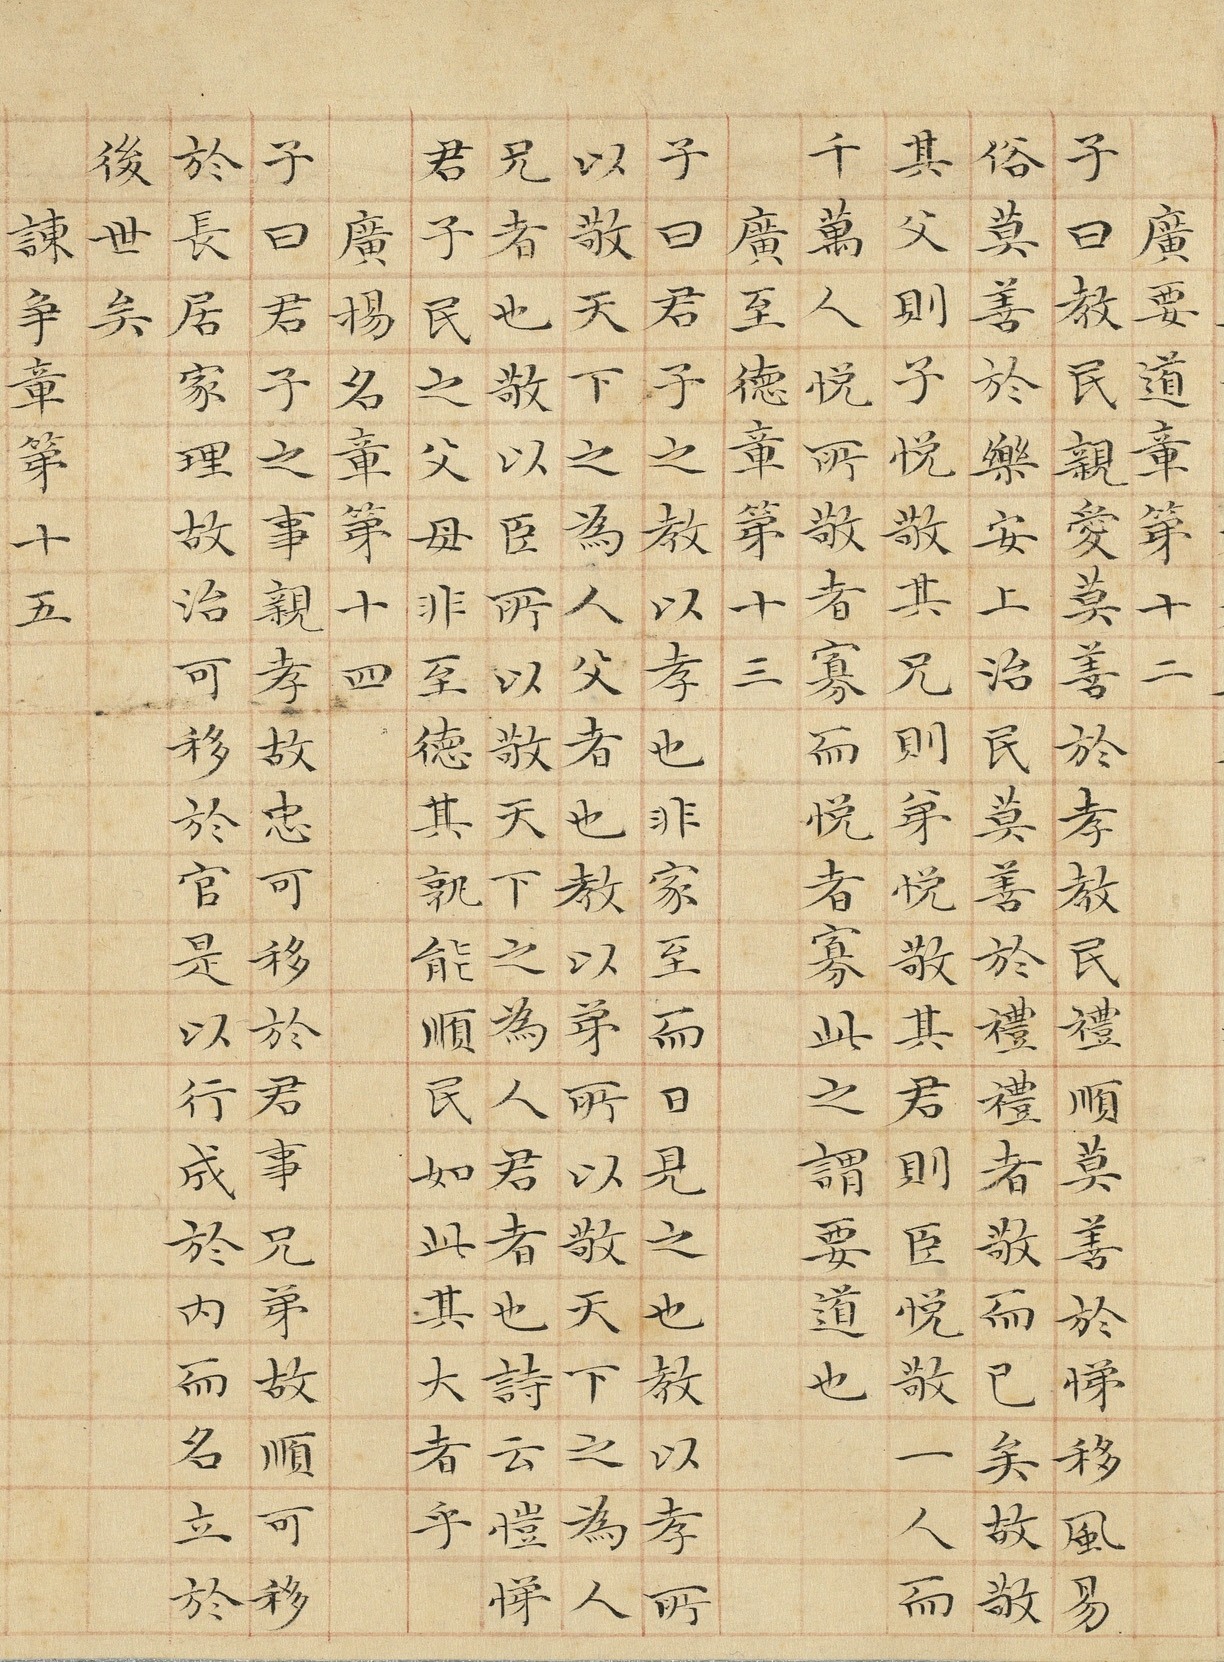 廣要道章第十二
子曰教民親愛莫善於孝教民禮順莫善於悌移風易
俗莫善於樂安上治民莫善於禮禮者敬而已矣故敬
其父則子悅敬其兄則弟悅敬其君則臣悅敬一人而
千萬人悅所敬者寡而悅者寡此之謂要道也
廣至德章第十三
子曰君子之教以孝也非家至而日見之也教以孝所
以敬天下之為人父者也教以弟所以敬天下之為人
兄者也敬以臣所以敬天下之為人君者也詩云愷悌
君子民之父母非至德其孰能順民如此其大者乎
廣揚名章第十四
子曰君子之事親孝故忠可移於君事兄弟故順可移
於長居家理故治可移於官是以行成於内而名立於
後世矣
諫爭章第十五